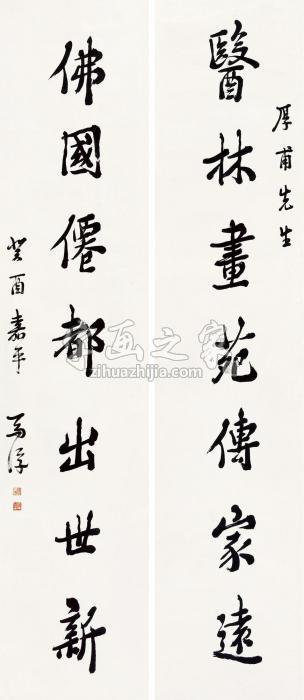 厚甫先生
醫林畫苑傳家遠
佛國僊都出世新
癸酉嘉平 馬浮
字画之家
zihuazhijia.com